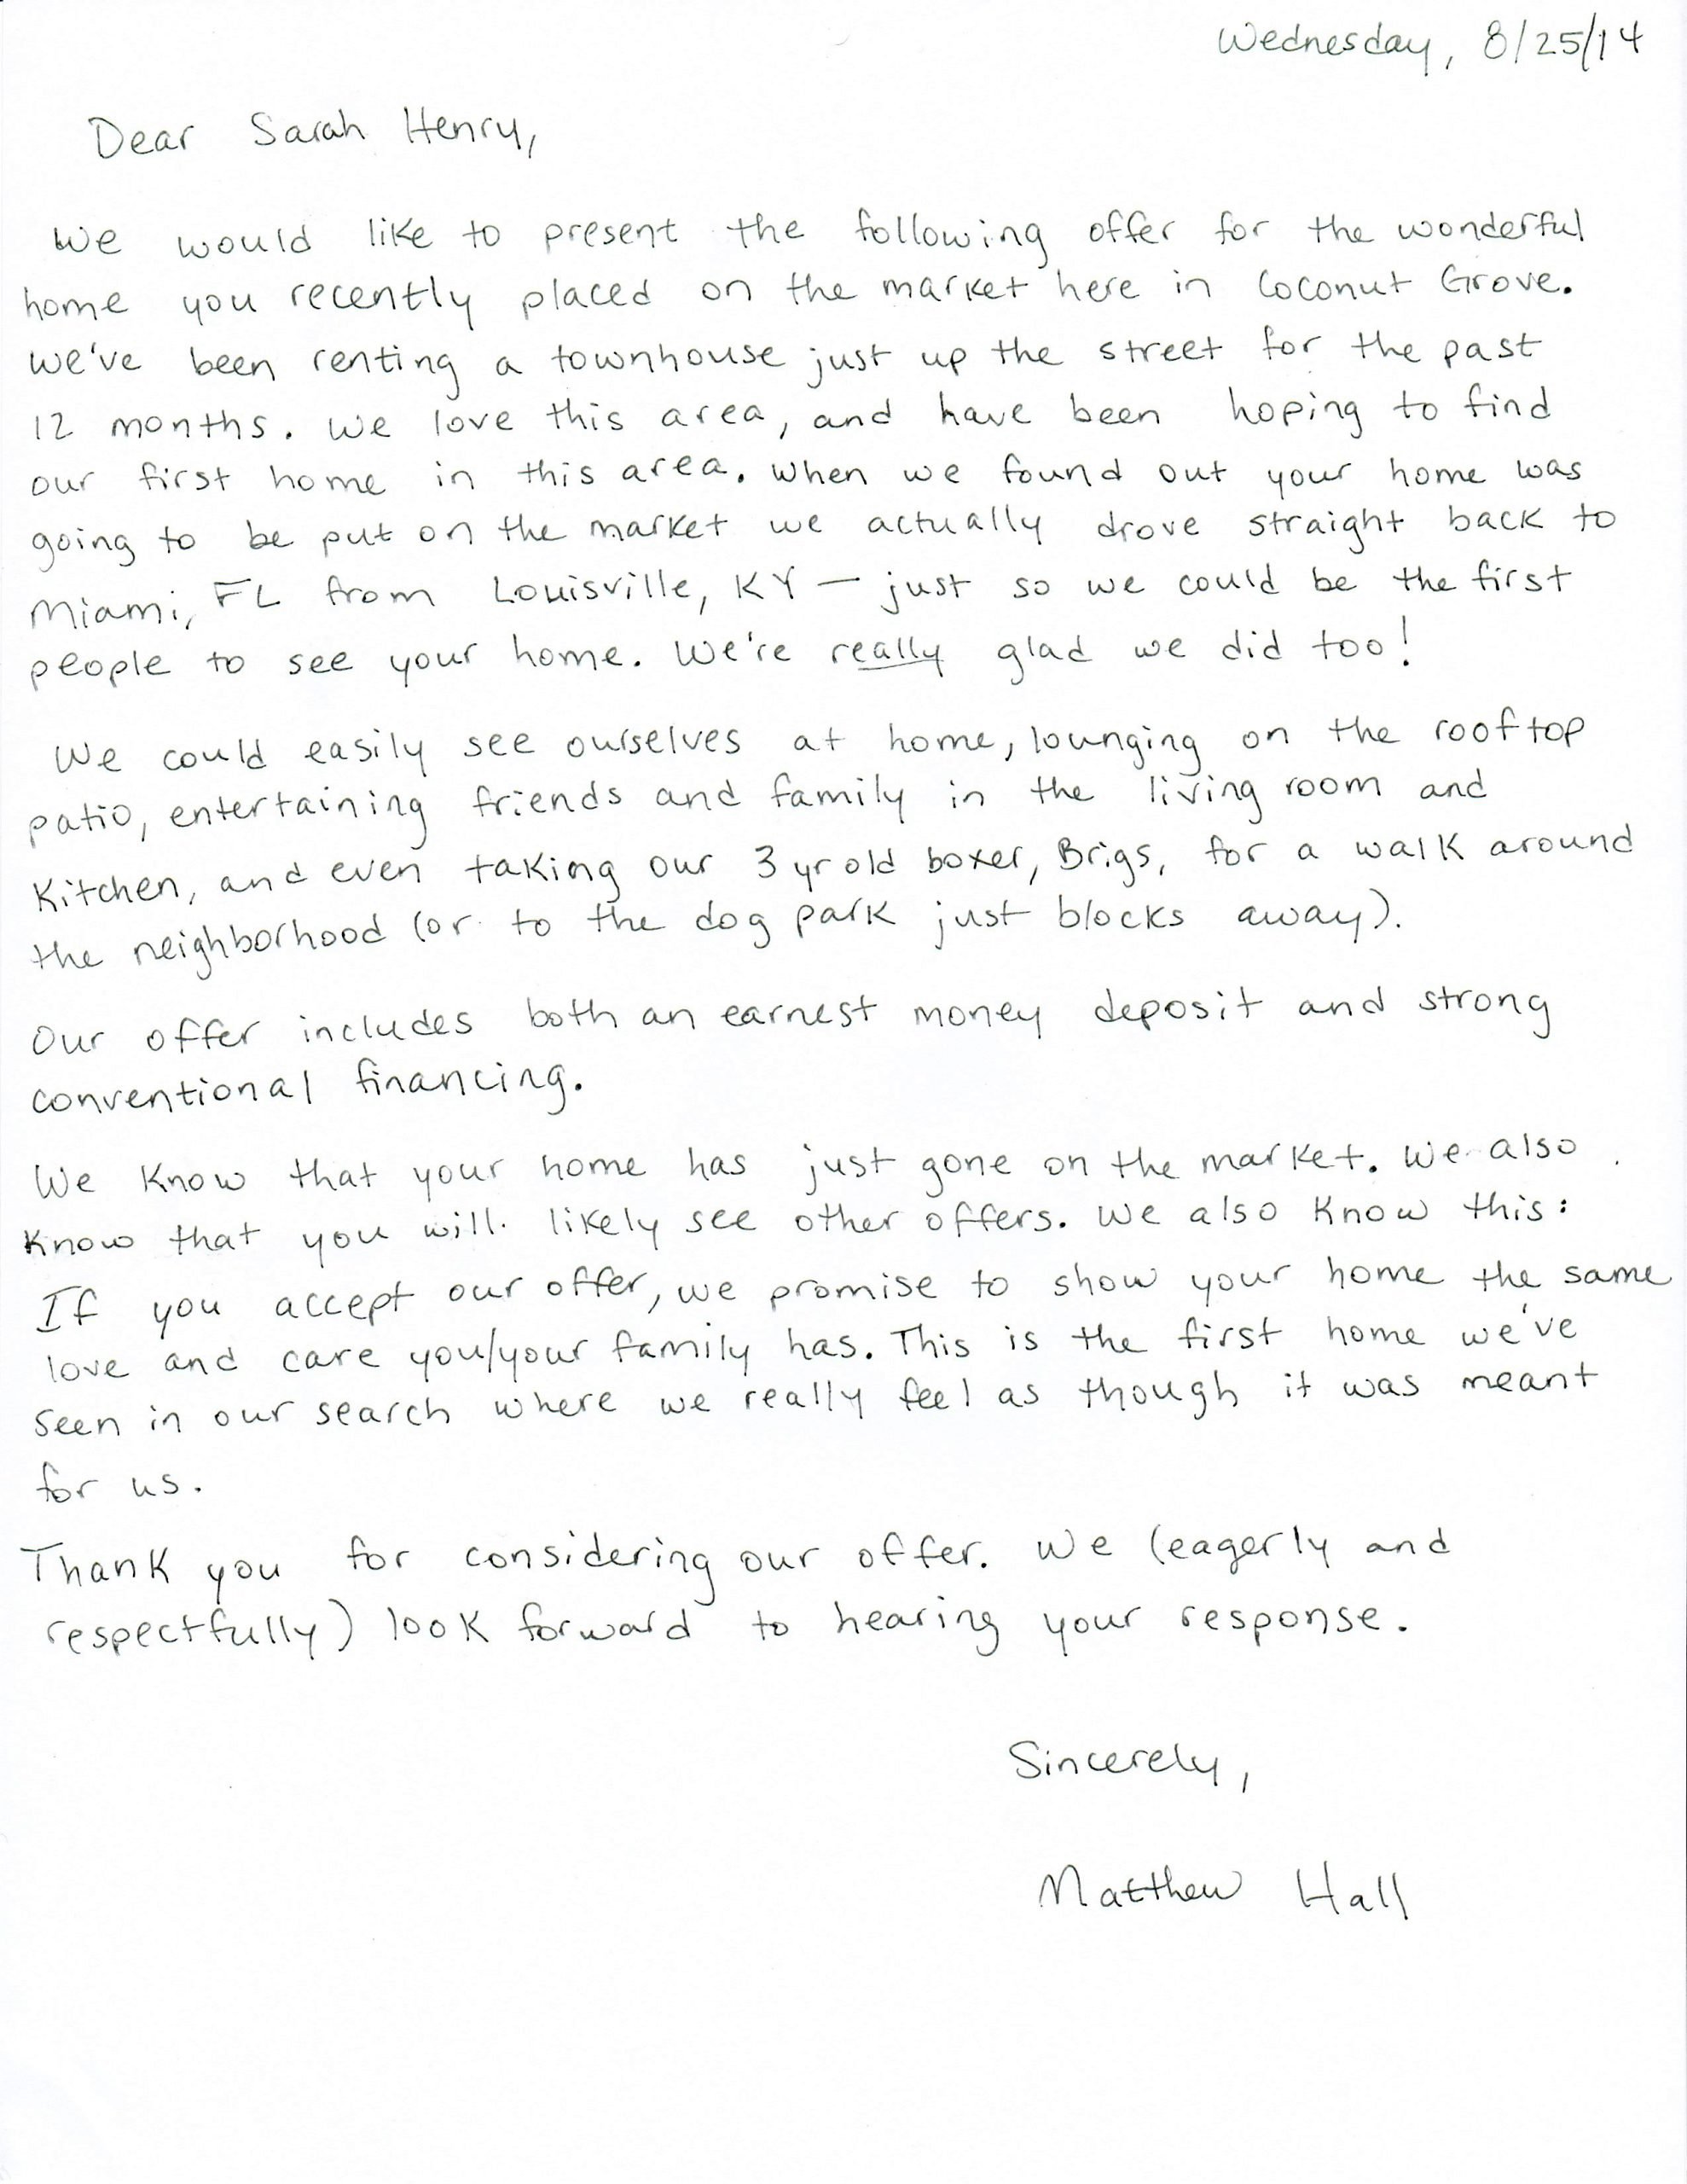 Wednesday, 8/25/14
Dear Sarah Henry,
We would like to present the following offer for the wonderful
home you recently placed on the market here in Coconut Grove.
We've been renting a townhouse just up the street for the past
12 months. We love this area, and have been hoping to find
our first home in this area. When we found out your home was
going to be put on the market we actually drove straight back to
Miami, FL from Louisville, KY — just so we could be the first
people to see your home. We're really glad we did too!
We could easily see ourselves at home, lounging on the rooftop
patio, entertaining friends and family in the living room and
Kitchen, and even taking our 3 yr old boxer, Brigs, for a walk around
the neighborhood (or to the dog park just blocks away).
Our offer includes both an earnest money deposit and strong
conventional financing.
We know that your home has just gone on the market. We also
know that you will likely see other offers. We also know this:
If you accept our offer, we promise to show your home the same
love and care you/your family has. This is the first home we've
seen in our search where we really feel as though it was meant
for us.
Thank you for considering our offer. We (eagerly and
respectfully) look forward to hearing your response.
Sincerely,
Matthew Hall